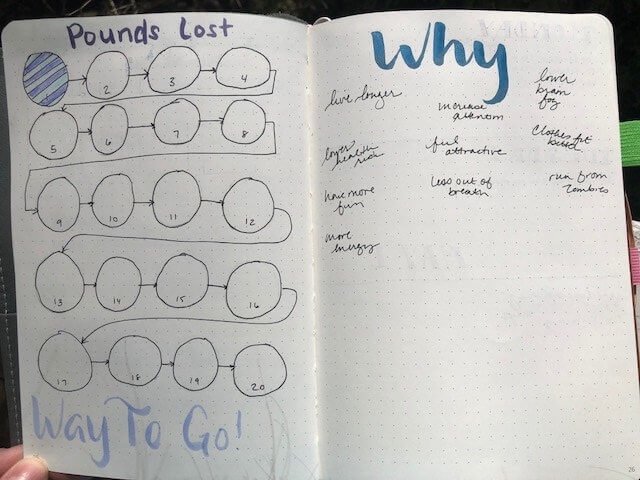 Pounds Lost
2
3
4
5
6
7
8
9
10
11
12
13
14
15
16
17
18
19
20
Way To Go!
Why
live longer
lower
health
risk
have more
fun
more
energy
increase
feel
attractive
less out of
breath
lower
brain
fog
Clothes fit
better
run from
zombies
26